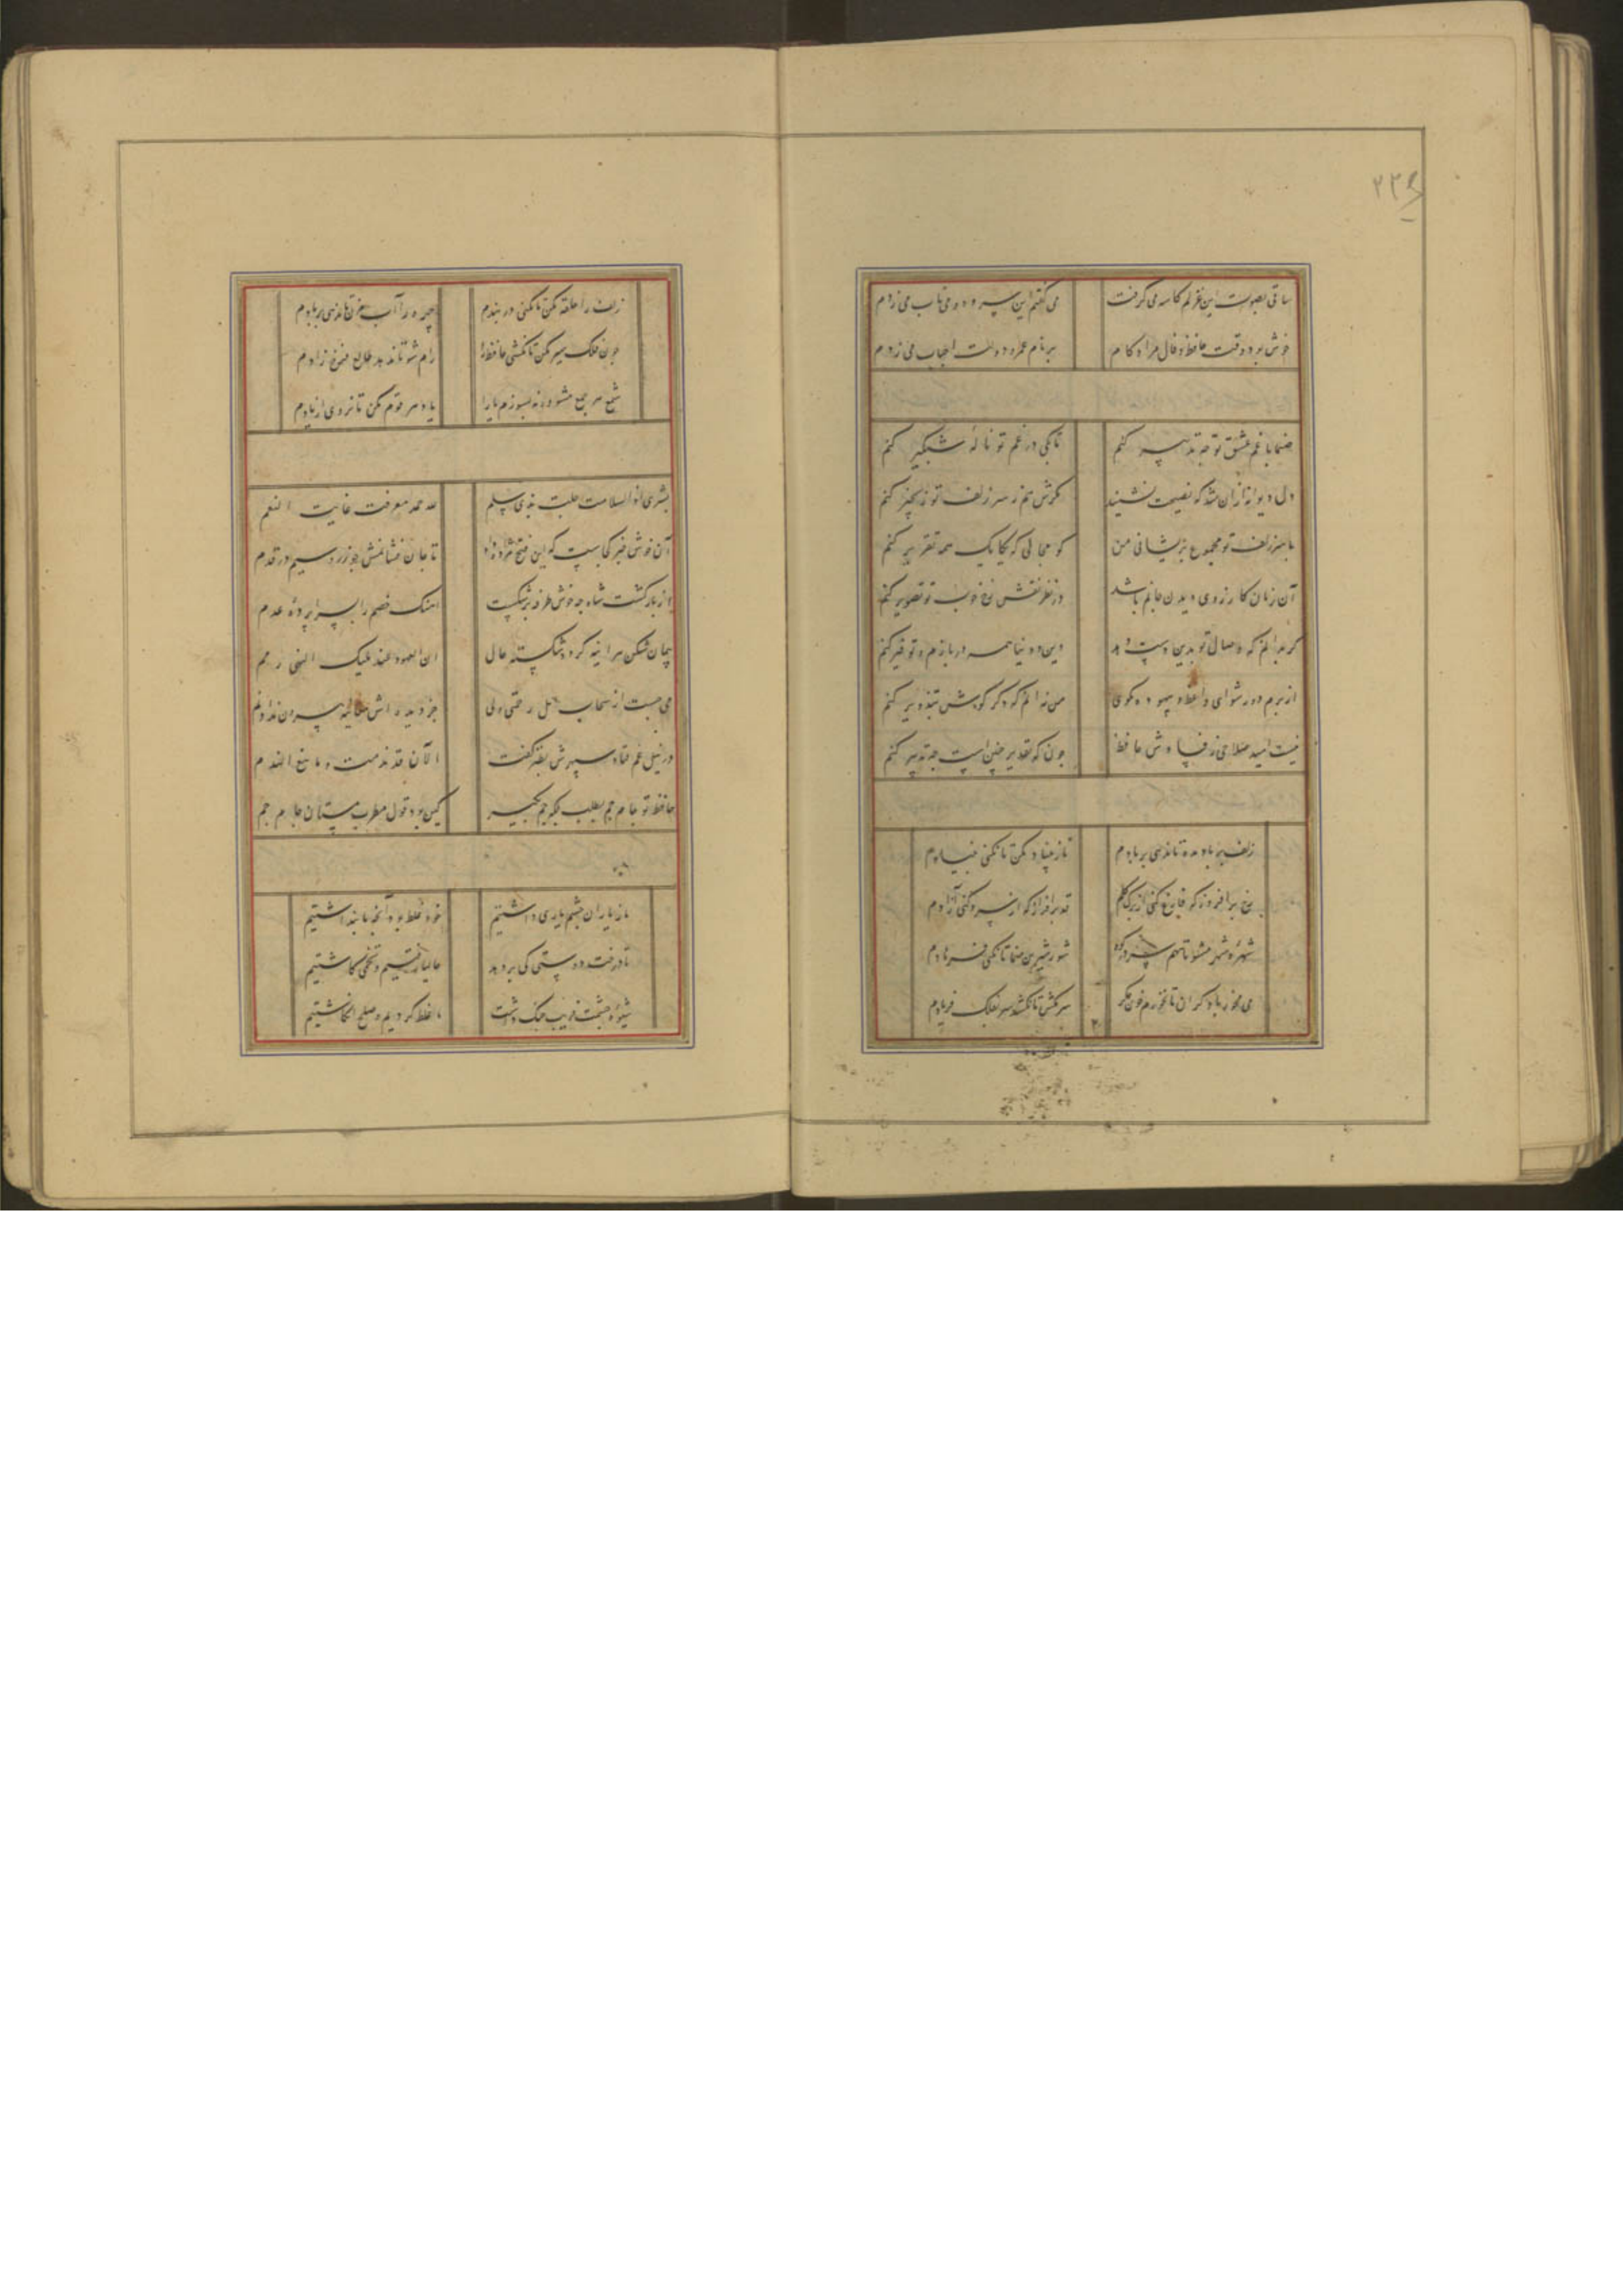 ۲۲۶
ساقی بصوت این غزلم کاسه می گرفت می گفتم این سرود و می ناب می زدم
خوش بود وقت حافظ و فال مراد و کام بر نام عمر و دولت احباب می زدم
صنما با غم عشق تو چه تدبیر کنم تا بکی در غم تو ناله شبگیر کنم
دل دیوانه از آن شد که نصیحت شنود مگرش هم ز سر زلف تو زنجیر کنم
با سر زلف تو مجموع پریشانی من کو مجالی که یکایک همه تقریر کنم
آن زمان کارزوی دیدن جانم باشد در نظر نقش رخ خوب تو تصویر کنم
گر بدانم که وصال تو بدین دست دهد دین و دنیا همه در بازم و توفیر کنم
از برم دور شو ای واعظ و بیهوده مگوی من نه آنم که دگر گوش بتزویر کنم
نیست امید صلاحی ز فساد حافظ چون که تقدیر چنین است چه تدبیر کنم
زلف بر باد مده تا ندهی بر بادم ناز بنیاد مکن تا نکنی بنیادم
رخ برافروز که فارغ کنی از برگ گلم قد برافراز که از سرو کنی آزادم
شهره شهر مشو تا ننهم سر در کوه شور شیرین منما تا نکنی فرهادم
می مخور با دگران تا نخورم خون جگر سر مکش تا نکشد سر بفلک فریادم
زلف را حلقه مکن تا نکنی در بندم چهره را آب مزن تا ندهی بر بادم
چون فلک سیر مکن تا نکشی حافظ را رام شو تا بدهد طالع فرخ زادم
شمع هر جمع مشو ورنه بسوزم ما را یاد هر قوم مکن تا نروی از یادم
بشری اذ السلامت حلت بذی سلم لله حمد معرفت غایت النعم
آن خوش خبر کجاست که این فتح مژده داد تا جان فشانمش چو زر و سیم در قدم
از بازگشت شاه چه خوش طرفه برشکست آهنگ خصم را بسراپرده عدم
پیمان شکن هر آینه گردد شکسته حال ان العهود عند ملیک النهی ذمم
می جست از سحاب امل رحمتی ولی جز دیده اش معاینه بیرون نداد نم
در نیل غم فتاد سپهرش بطنز گفت الآن قد ندمت و ما ینفع الندم
حافظ تو جام جم بطلب ملک جم مگیر کین بود قول مطرب بستان جام جم
ما ز یاران چشم یاری داشتیم خود غلط بود آنچه ما پنداشتیم
تا درخت دوستی کی بر دهد حالیا رفتیم و تخمی کاشتیم
شیوه چشمت فریب جنگ داشت ما غلط کردیم و صلح انگاشتیم